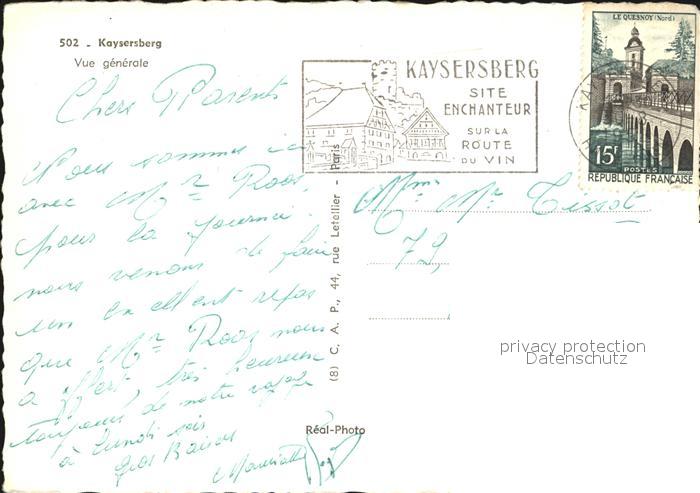 502 - Kaysersberg
Vue générale
Chers Parents
Nous sommes ici
avec Mr Roos
pour la journée.
nous venons de faire
un excellent repas
que Mr Roos nous
a offert, très heureux
toujours de notre voyage
à lundi soir
Gros Baisers
KAYSERSBERG
SITE
ENCHANTEUR
SUR LA
ROUTE
DU VIN
LE QUESNOY (Nord)
15F
POSTES
RÉPUBLIQUE FRANÇAISE
Mme Mr Tissot
72,
(8) C. A. P., 44, rue Letellier - Paris
Réal-Photo
privacy protection
Datenschutz